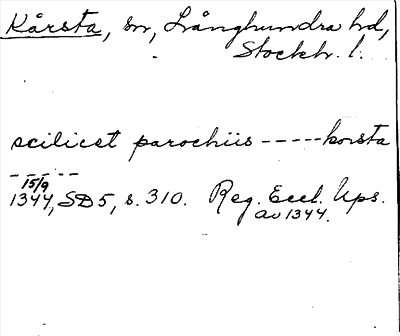 Kårsta, sn, Långhundra hd,
Stockh. l.
scilicet parochiis ----- korsta
-----
15/9
1344, SD5, s. 310. Reg. Eccl. Ups.
av 1344.